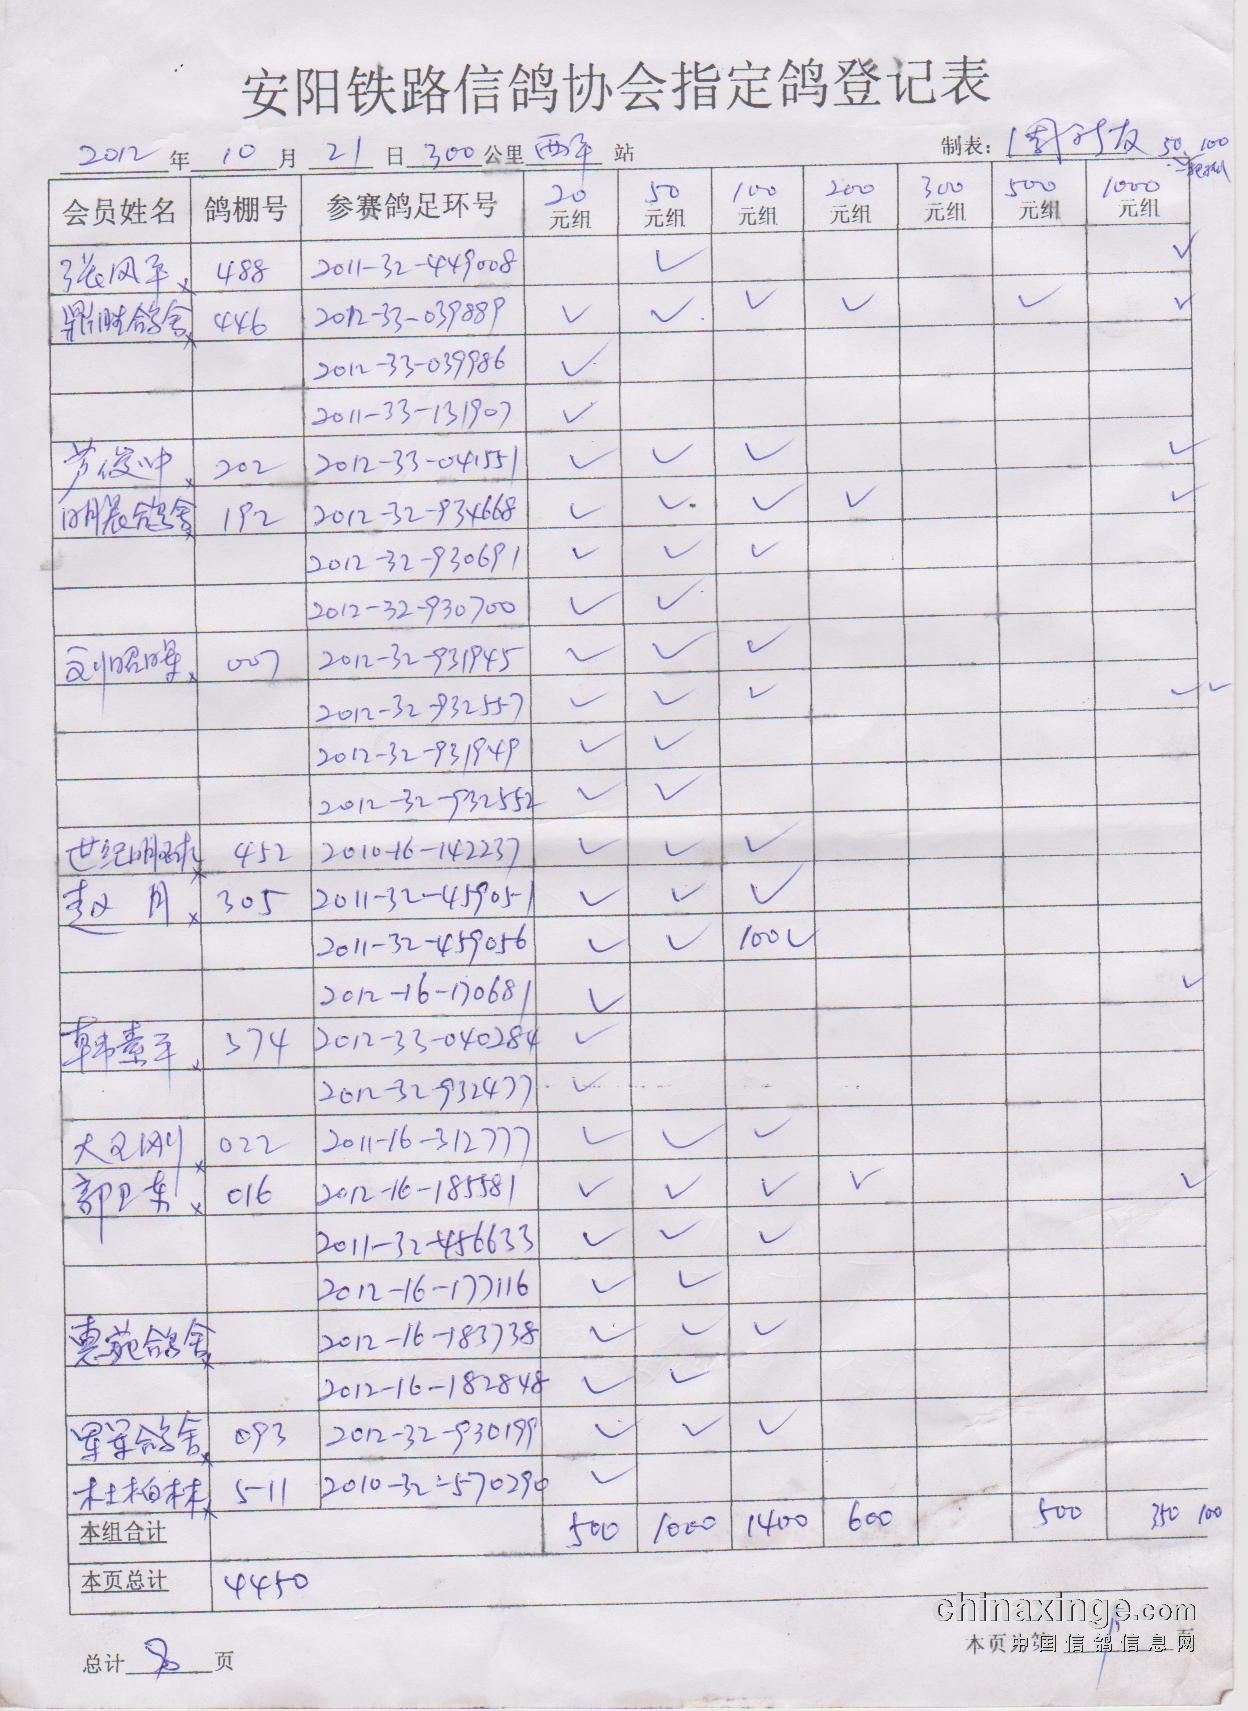 安阳铁路信鸽协会指定鸽登记表
2012年 10月 21日 300公里 西平 站 制表: 周 友 50 100
会员姓名 鸽棚号 参赛鸽足环号 20元组 50元组 100元组 200元组 300元组 500元组 1000元组
张风平 × 488 2011-32-449008 ✓ ✓
鼎胜鸽舍 × 446 2012-33-039889 ✓ ✓ ✓ ✓ ✓ ✓
2012-33-039986 ✓
2011-33-131907 ✓
芦俊冲 × 202 2012-33-041551 ✓ ✓ ✓ ✓
明晨鸽舍 × 192 2012-32-934668 ✓ ✓ ✓ ✓ ✓
2012-32-930691 ✓ ✓ ✓
2012-32-930700 ✓ ✓
刘昭星 × 007 2012-32-931945 ✓ ✓ ✓
2012-32-932557 ✓ ✓ ✓ ✓ ✓
2012-32-931949 ✓ ✓
2012-32-932552 ✓ ✓
世纪明珠 × 452 2010-16-142237 ✓ ✓ ✓
赵 月 × 305 2011-32-459051 ✓ ✓ ✓
2011-32-459056 ✓ ✓ 100✓
2012-16-170681 ✓ ✓
韩素平 × 374 2012-33-040284 ✓
2012-32-932477 ✓
大卫刚 × 022 2011-16-312777 ✓ ✓ ✓
郭卫东 × 016 2012-16-185581 ✓ ✓ ✓ ✓ ✓
2011-32-456633 ✓ ✓ ✓
2012-16-177116 ✓ ✓
惠苑鸽舍 × 2012-16-183738 ✓ ✓ ✓
2012-16-182848 ✓ ✓
军军鸽舍 × 093 2012-32-930199 ✓ ✓ ✓
杜柏林 × 511 2010-32-570290 ✓
本组合计 500 1000 1400 600 500 350 100
本页总计 4450
chinaxinge.com
中国信鸽信息网
总计 8 页 本页为第 1 页